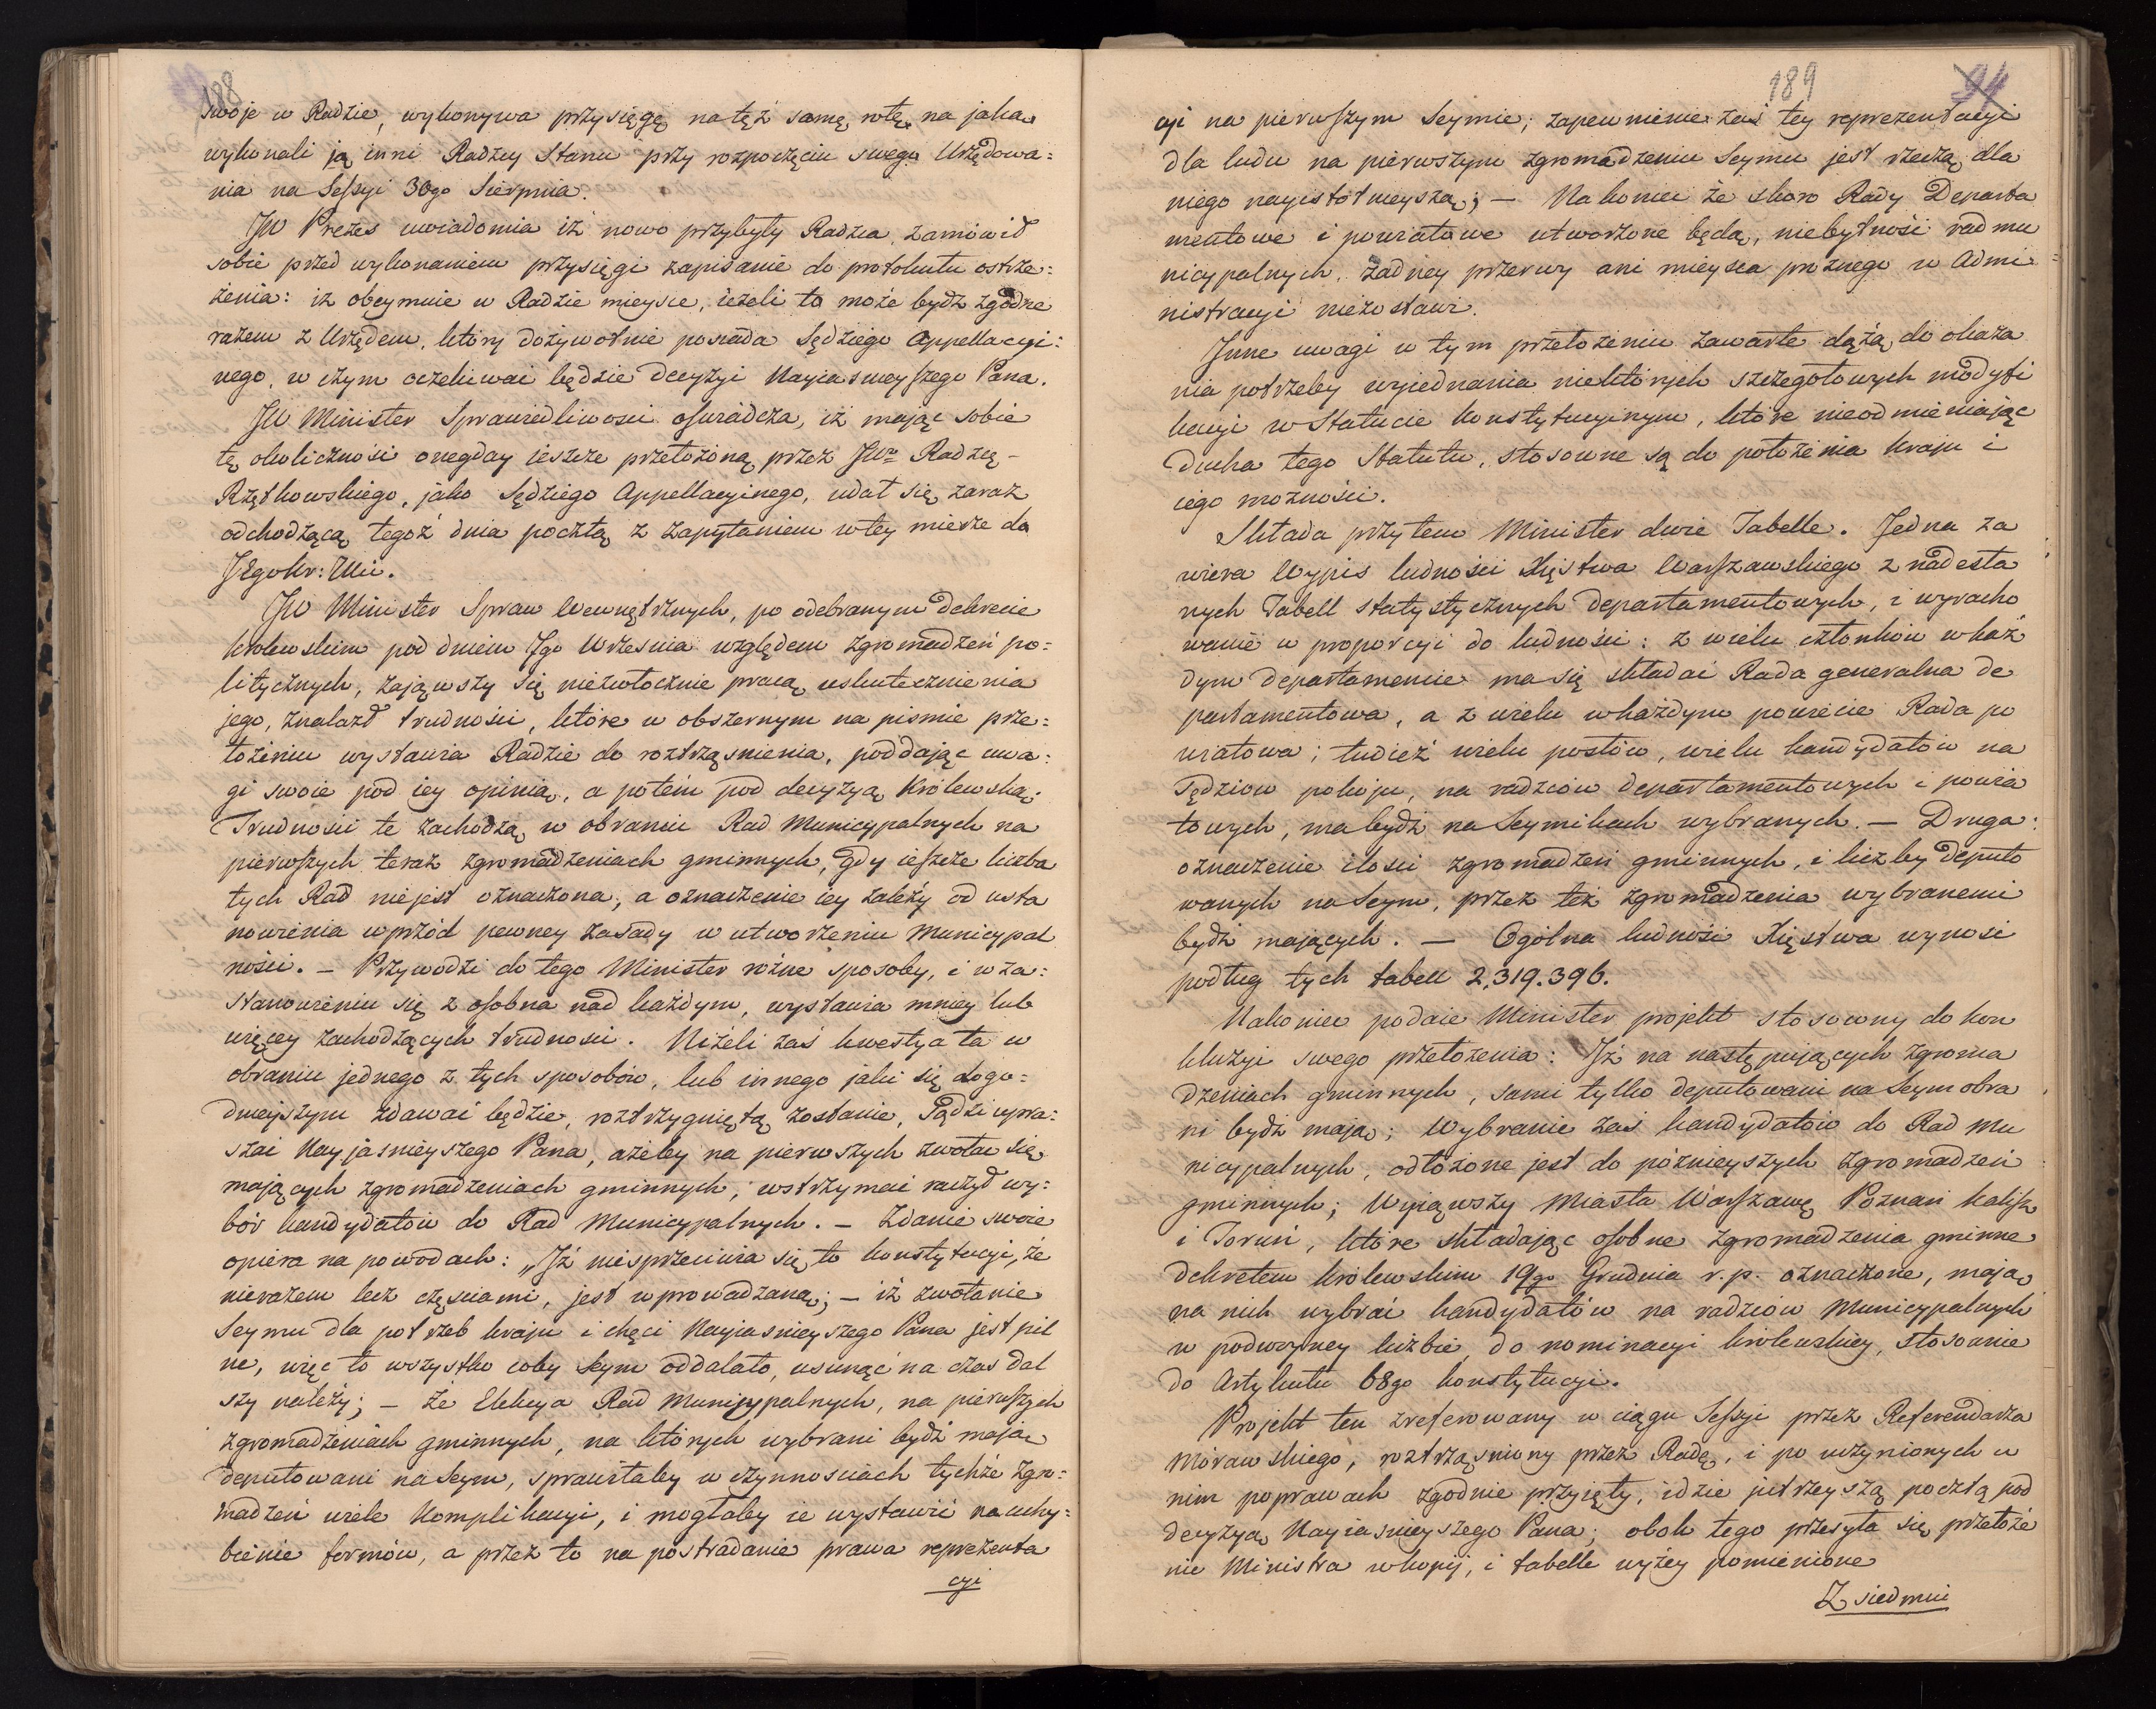 188
swoje w Radzie, wykonywa przysięgę na też samę rotę, na jaką
wykonali ją inni Radzcy Stanu przy rozpoczęciu swego Urzędowa=
nia na Seſsyi 30go Sierpnia.
JW Prezes uwiadomia iż nowo przybyły Radzca, zamówił
sobie przed wykonaniem przysięgi zapisanie do protokułu ostrze=
żenia: iż obeymuie w Radzie mieysce, ieżeli to może bydź zgodne
razem z Urzędem, który dożywotnie posiada Sędziego Appellacyi=
nego, w czym oczekiwać będzie decyzyi Nayiaśnieyſzego Pana.
JW Minister Sprawiedliwości oſwiadcza, iż mając sobie
tę okoliczność onegday ieszcze przełożoną przez JWo Radzcę -
Rzętkowskiego, jako Sędziego Appellacyinego, udał się zaraz
odchodzącą tegoż dnia pocztą z zapytaniem w tey mierze do
JEgo Kr: Mci.
JW Minister Spraw Wewnętrznych, po odebranym dekrecie
królewskim pod dniem 7go Września względem zgromadzeń po=
litycznych, zająwszy się niezwłocznie pracą uskutecznienia
jego, znalazł trudności, które w obszernym na pismie prze=
łożeniu wystawia Radzie do roztrząśnienia, poddając uwa=
gi swoie pod iey opinią, a potém pod decyzyą Królewską:
Trudności te zachodzą w obraniu Rad Municypalnych na
pierwſzych teraz zgromadzeniach gminnych, gdy ieſzcze liczba
tych Rad nie jest oznaczona, a oznaczenie iey zależy od usta
nowienia wprzód pewney zasady w utworzeniu Municypal
ności. — Przywodzi do tego Minister różne sposoby, i w za=
stanowieniu się z oſobna nad każdym, wystawia mniey lub
więcey zachodzących trudności. Niżeli zaś kwestya ta w
obraniu jednego z tych sposobów, lub innego jaki się dogo=
dnieyszym zdawać będzie, roztrzygniętą zostanie, sądzi upra=
szać Nayjaśnieyszego Pana, ażeby na pierwszych zwołać się
mających zgromadzeniach gminnych, wstrzymać raczył wy=
bór kandydatów do Rad Municypalnych. — Zdanie swoie
opiera na powodach: „Iż niesprzeciwia się to konstytucyi, że
nierazem lecz częściami, jest wprowadzaną; — iż zwołanie
Seymu dla potrzeb kraju i chęci Nayiaśnieyszego Pana jest pil
ne, więc to wszystko coby Seym oddalało, usunąć na czas dal
szy należy; — że Elekcya Rad Municypalnych, na pierwſzych
zgromadzeniach gminnych, na których wybrani bydź mają
deputowani na Seym, sprawiłaby w czynnościach tychże zgro=
madzeń wiele Komplikacyi, i mogłaby ie wystawić na uchy=
bienie formów, a przez to na postradanie prawa reprezenta
cyi
189
94
cyi na pierwſzym Seymie; zapewnienie zaś tey reprezentacyi
dla ludu na pierwszym zgromadzeniu Seymu jest rzeczą dla
niego nayistotnieyszą; — Nakoniec że skoro Rady Departa
mentowe i powiatowe utworzone będą, niebytność rad mu
nicypalnych, żadney przerwy ani mieysca próżnego w Admi=
nistracyi niezostawi.
Inne uwagi w tym przełożeniu zawarte dążą do okaza
nia potrzeby wyiednania niektórych szczegółowych modyfi
kacyi w Statucie konstytucyinym, które nieodmieniając
ducha tego Statutu, stosowne są do położenia kraju i
iego możności.
Składa przytem Minister dwie Tabelle. Jedna za
wiera Wypis ludności Xięstwa Warſzawskiego z nadesła
nych Tabell statystycznych departamentowych, i wyracho
wanie w proporcyi do ludności: z wielu członków w każ
dym departamencie ma się składać Rada generalna de
partamentowa, a z wielu w każdym powiecie Rada po
wiatowa; tudzież wielu posłów, wielu kandydatów na
Sędziów pokoju, na radzców departamentowych i powia
towych, ma bydź na Seymikach wybranych. — Druga:
oznaczenie ilości zgromadzeń gminnych, i liczby deputo
wanych na Seym, przez też zgromadzenia wybranemi
bydź mających. — Ogólna ludność Xięstwa wynosi
podług tych tabell 2,319.396.
Nakoniec podaie Minister projekt stosowny do kon
kluzyi swego przełożenia: Iż na następujących zgroma
dzeniach gminnych, sami tylko deputowani na Seym obra
ni bydź mają; Wybranie zaś kandydatów do Rad Mu
nicypalnych, odłożone jest do poźnieyszych zgromadzeń
gminnych; Wyiąwszy Miasta Warſzawę, Poznań Kaliſz
i Toruń, które składając oſobne zgromadzenia gminne
dekretem królewskim 19go Grudnia r. p. oznaczone, mają
na nich wybrać kandydatów na radzców Municypalnych
w podwoyney liczbie, do nominacyi królewskiey, stosownie
do Artykułu 68go konstytucyi.
Projekt ten zreferowany w ciągu Seſsyi przez Referendarza
Morawskiego, roztrząśniony przez Radę, i po uczynionych w
nim poprawach zgodnie przyięty, idzie jutrzeyszą pocztą pod
decyzyą Nayiaśnieyszego Pana; obok tego przesyła się przełoże
nie Ministra w kopij, i tabelle wyżey pomienione
Z siedmiu